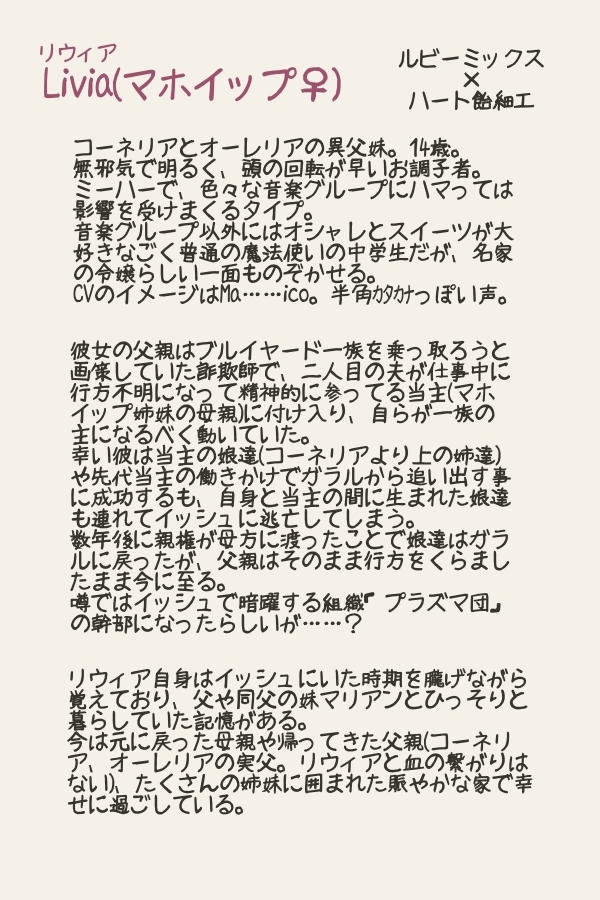 リウィア
Livia(マホイップ♀)
ルビーミックス
×
ハート飴細工
コーネリアとオーレリアの異父妹。14歳。
無邪気で明るく、頭の回転が早いお調子者。
ミーハーで、色々な音楽グループにハマっては
影響を受けまくるタイプ。
音楽グループ以外にはオシャレとスイーツが大
好きなごく普通の魔法使いの中学生だが、名家
の令嬢らしい一面ものぞかせる。
CVのイメージはMa……ico。半角ｶﾀｶﾅっぽい声。
彼女の父親はブルイヤード一族を乗っ取ろうと
画策していた詐欺師で、二人目の夫が仕事中に
行方不明になって精神的に参ってる当主(マホ
イップ姉妹の母親)に付け入り、自らが一族の
主になるべく動いていた。
幸い彼は当主の娘達(コーネリアより上の姉達)
や先代当主の働きかけでガラルから追い出す事
に成功するも、自身と当主の間に生まれた娘達
も連れてイッシュに逃亡してしまう。
数年後に親権が母方に渡ったことで娘達はガラ
ルに戻ったが、父親はそのまま行方をくらまし
たまま今に至る。
噂ではイッシュで暗躍する組織『プラズマ団』
の幹部になったらしいが……？
リウィア自身はイッシュにいた時期を朧げながら
覚えており、父や同父の妹マリアンとひっそりと
暮らしていた記憶がある。
今は元に戻った母親や帰ってきた父親(コーネリ
ア、オーレリアの実父。リウィアと血の繋がりは
ない)、たくさんの姉妹に囲まれた賑やかな家で幸
せに過ごしている。